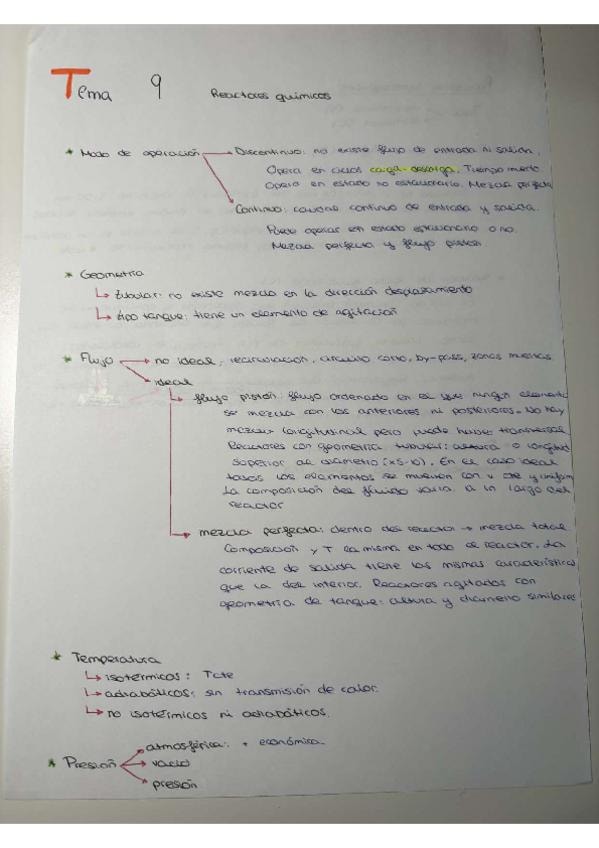 Tema 9 Reactores químicos
* Modo de operación → Discontinuo: no existe flujo de entrada ni salida.
Opera en ciclos carga-descarga. Tiempo muerto
Opera en estado no estacionario. Mezcla perfecta
Continuo: caudal continuo de entrada y salida.
Puede operar en estado estacionario o no.
Mezcla perfecta y flujo pistón.
* Geometría
↳ tubular: no existe mezcla en la dirección desplazamiento
↳ tipo tanque: tiene un elemento de agitación
* Flujo → no ideal, recirculación, circuito corto, by-pass, zonas muertas
ideal
↳ flujo pistón: flujo ordenado en el que ningún elemento
se mezcla con los anteriores ni posteriores. No hay
mezcla longitudinal pero puede haber transversal
Reactores con geometría tubular: altura o longitud
superior al diámetro (x5-10). En el caso ideal
todos los elementos se mueven con v cte y uniform
La composición del fluido varía a lo largo del
reactor
→ mezcla perfecta: dentro del reactor → mezcla total
Composición y T la misma en todo el reactor. La
corriente de salida tiene las mismas características
que la del interior. Reactores agitados con
geometría de tanque: altura y diámetro similares
* Temperatura
↳ isotérmicos: Tcte
↳ adiabáticos: sin transmisión de calor.
↳ no isotérmicos ni adiabáticos.
atmosférica: + económica.
* Presión → vacío
presión